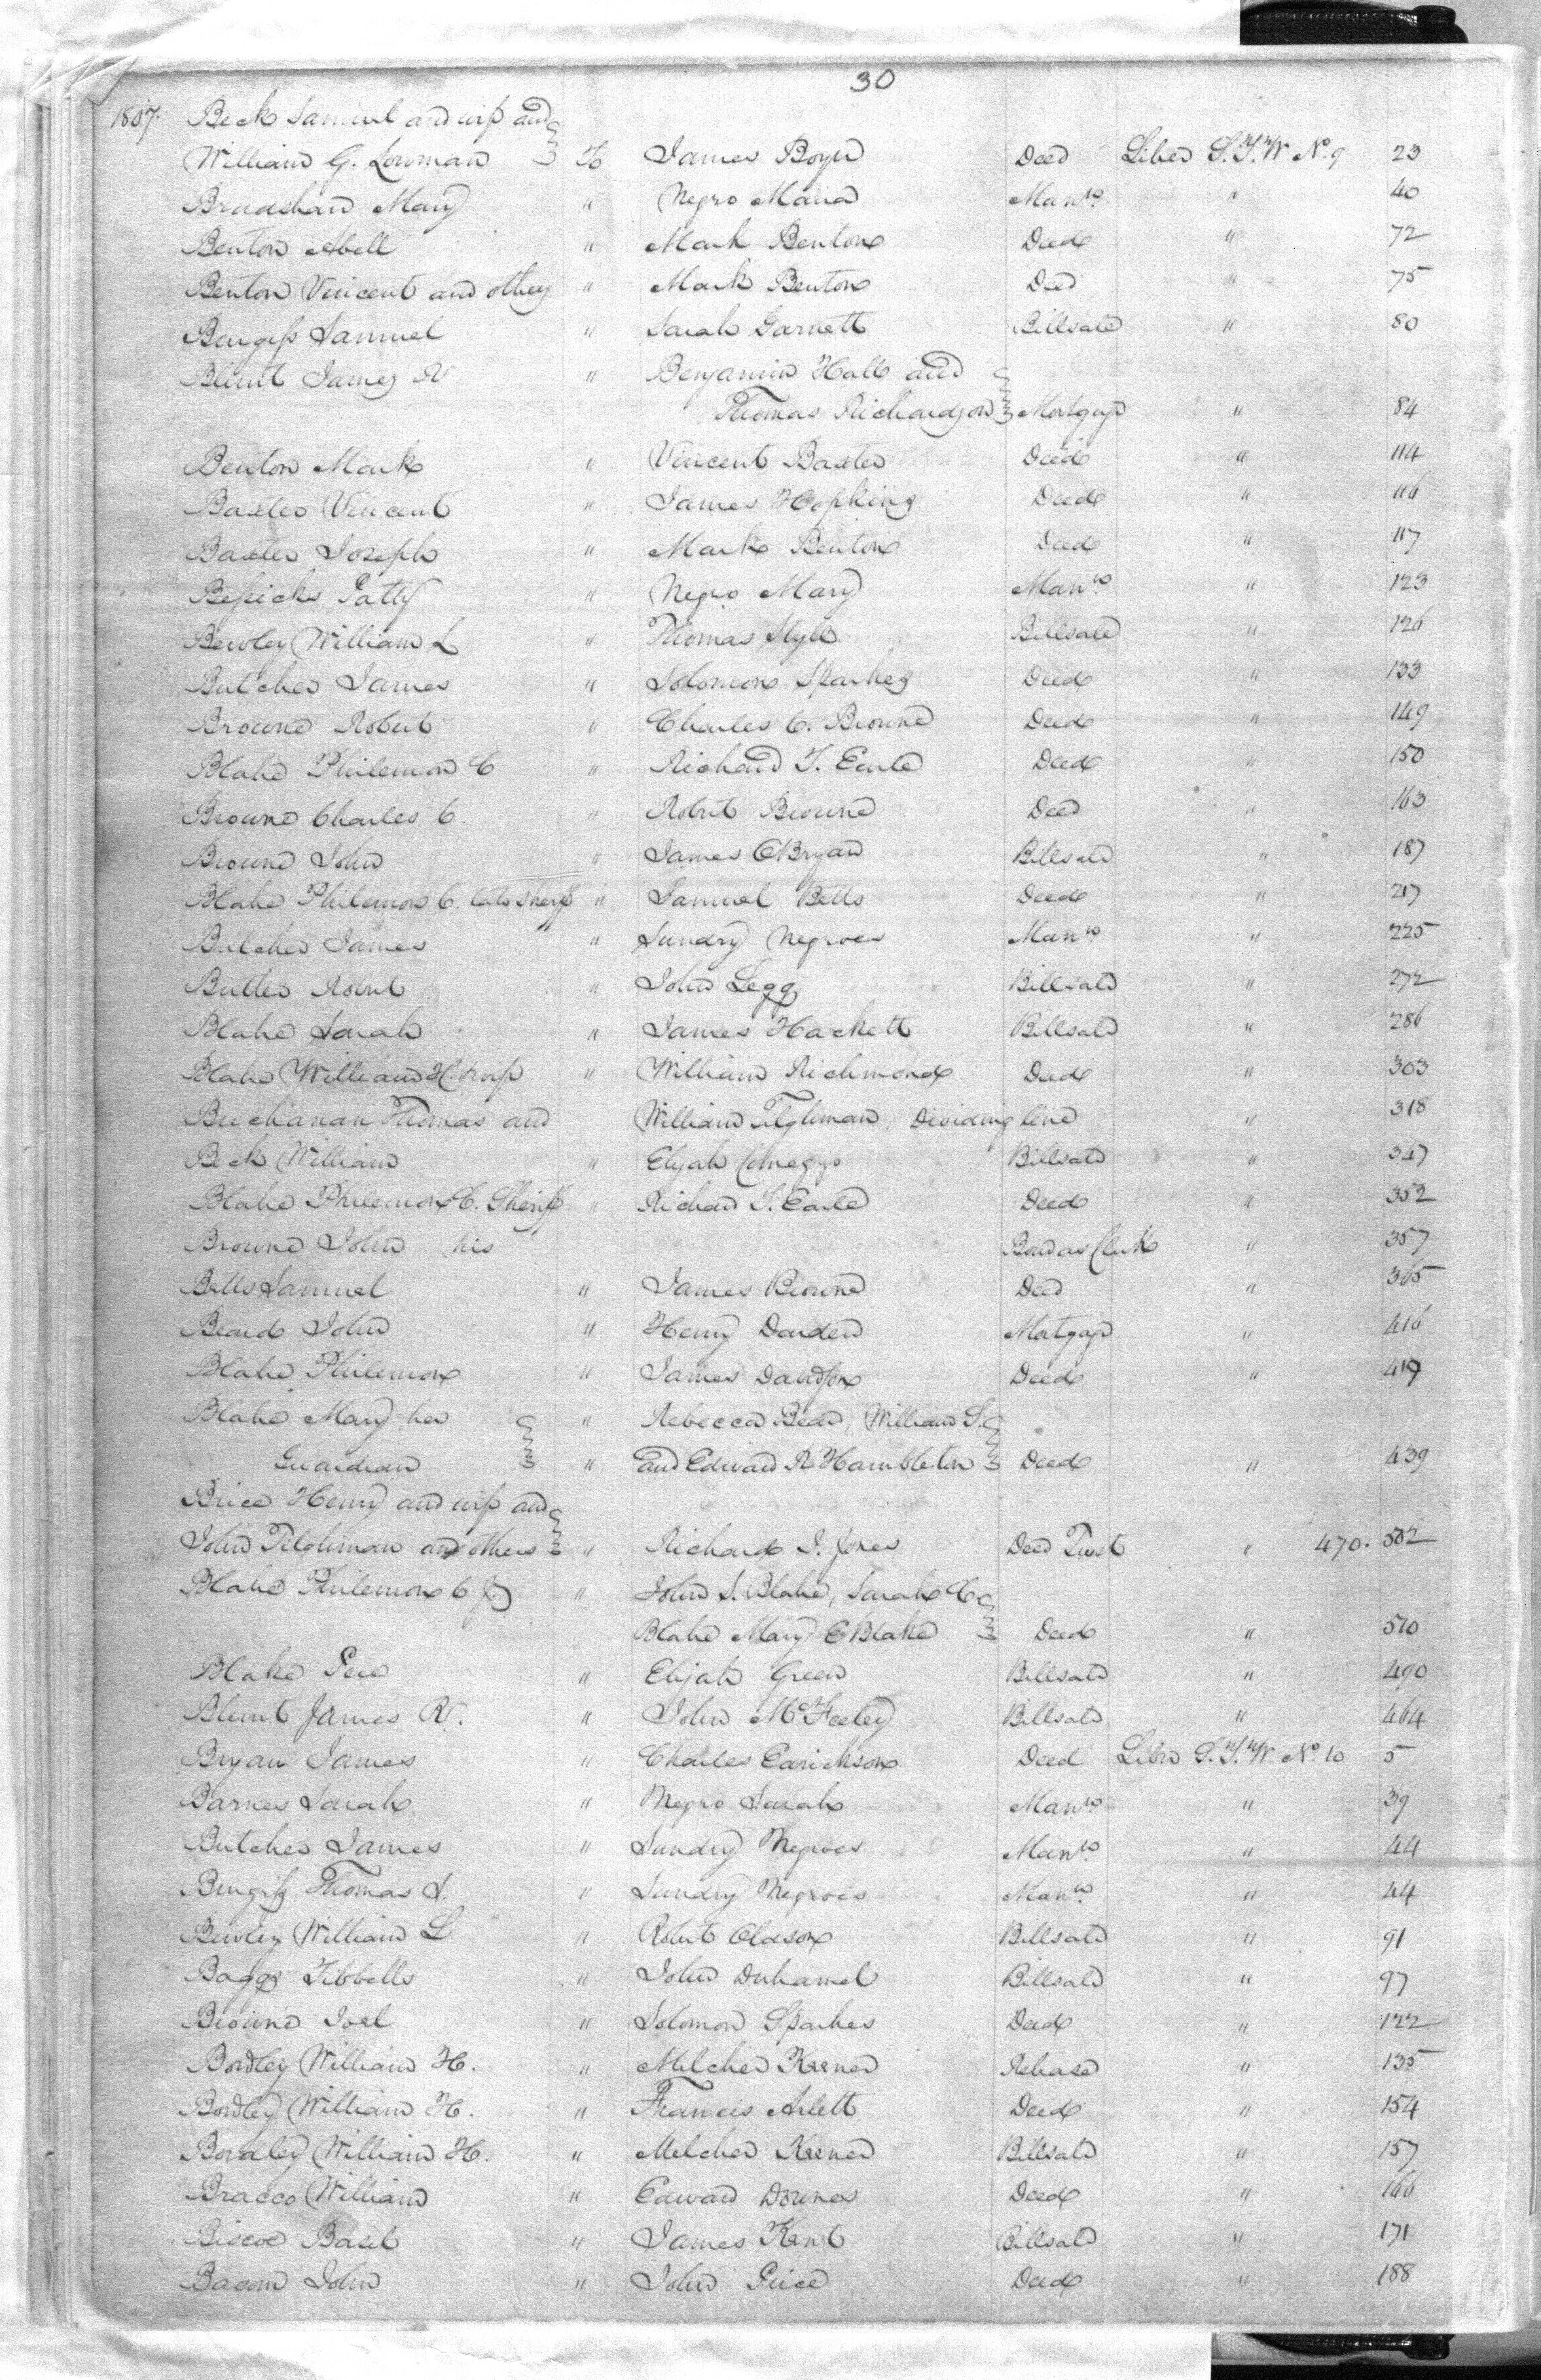 30
1807. Beck Samuel and wife and
William G. Lowman To James Boyer Deed Liber S.T.W No. 9 23
Bradshaw Mary " Negro Maria Mann. " 40
Benton Abell " Mark Benton Deed " 72
Benton Vincent and others " Mark Benton Deed " 75
Burgess Samuel " Sarah Garnett Billsale " 80
Blunt James R " Benjamin Hall and
Thomas Richardson Mortgage " 84
Benton Mark " Vincent Baxter Deed " 114
Baxter Vincent " James Hopkins Deed " 116
Baxter Joseph " Mark Benton Deed " 117
Bessicks Patty " Negro Mary Mann. " 123
Bewley William L " Thomas Billsale " 126
Butcher James " Solomon Sparkes Deed " 133
Browne Robert " Charles C. Browne Deed " 149
Blake Philemon C " Richard T. Earle Deed " 150
Browne Charles C. " Robert Browne Deed " 163
Browne John " James OBryan Billsale " 187
Blake Philemon C. late Sheriff " Samuel Betts Deed " 217
Butcher James " Sundry Negroes Mann. " 225
Butler Robert " John Legg Billsale " 272
Blake Sarah " James Hackett Billsale " 286
Blake William H. & wife " William Richmond Deed " 303
Buchanan Thomas and William Tilghman, Dividing line " 318
Beck William " Elijah Comegys Billsale " 347
Blake Philemon C. Sheriff " Richard T. Earle Deed " 352
Browne John his Bond as Clerk " 357
Betts Samuel " James Browne Deed " 365
Beard John " Henry Darden Mortgage " 416
Blake Philemon " James Davidson Deed " 419
Blake Mary her " Rebecca Bear, William S.
Guardian " and Edward R Hambleton Deed " 439
Brice Henry and wife and
John Tilghman and others " Richard I. Jones Deed Trust " 470. 502
Blake Philemon C Jr " John S. Blake, Sarah C
Blake Mary E Blake Deed " 510
Blake Pere " Elijah Green Billsale " 490
Blunt James R. " John McFeeley Billsale " 464
Bryan James " Charles Earickson Deed Liber S.T.W. No. 10 5
Barnes Sarah " Negro Sarah Mann. " 39
Butcher James " Sundry Negroes Mann. " 44
Burgess Thomas S. " Sundry Negroes Mann. " 44
Bewley William L " Robert Oldson Billsale " 91
Baggs Tibbells " John Duhamel Billsale " 97
Browne Joel " Solomon Sparkes Deed " 122
Bordley William H. " Melcher Keener Release " 135
Bordley William H. " Francis Arlett Deed " 154
Bordley William H. " Melcher Keener Billsale " 157
Bracco William " Edward Downes Deed " 166
Biscoe Basil " James Kent Billsale " 171
Bacom John " John Price Deed " 188